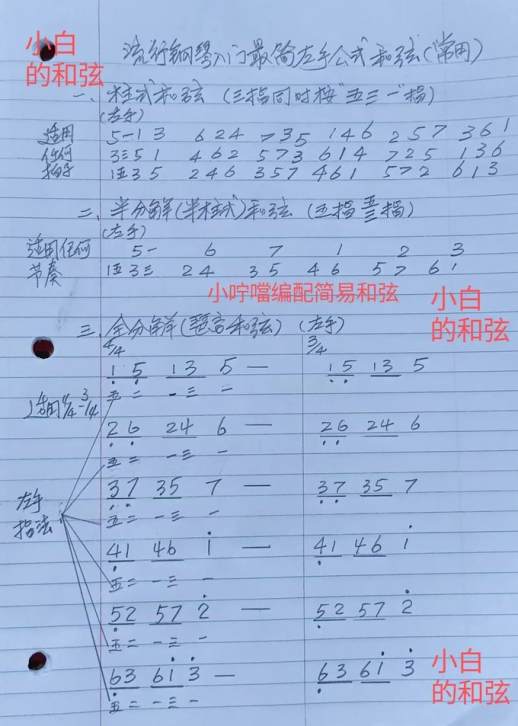 小白
的和弦
流行钢琴入门最简左手公式和弦(常用)
一、柱式和弦 (三指同时按"五三一"指)
(左手)
适用 5一1 3 6 2 4 7 3 5 1 4 6 2 5 7 3 6 1
任何 3三5 1 4 6 2 5 7 3 6 1 4 7 2 5 1 3 6
拍子 1五3 5 2 4 6 3 5 7 4 6 1 5 7 2 6 1 3
二、半分解(半柱式)和弦 (五指 指)
(左手)
适用任何 5一 6 7 1 2 3
节奏 1五3三 2 4 3 5 4 6 5 7 6 1
小咛噹编配简易和弦
小白
的和弦
三、全分解(琶音和弦) (左手)
4/4 3/4
1 5 1 3 5 — 1 5 1 3 5
五二 一三 一
适用4/4 3/4
2 6 2 4 6 — 2 6 2 4 6
五二 一三 一
3 7 3 5 7 — 3 7 3 5 7
五二 一三 一
左手
指法
4 1 4 6 1 — 4 1 4 6 1
五二 一三 一
5 2 5 7 2 — 5 2 5 7 2
五二 一三 一
6 3 6 1 3 — 6 3 6 1 3
五二 一三 一
小白
的和弦